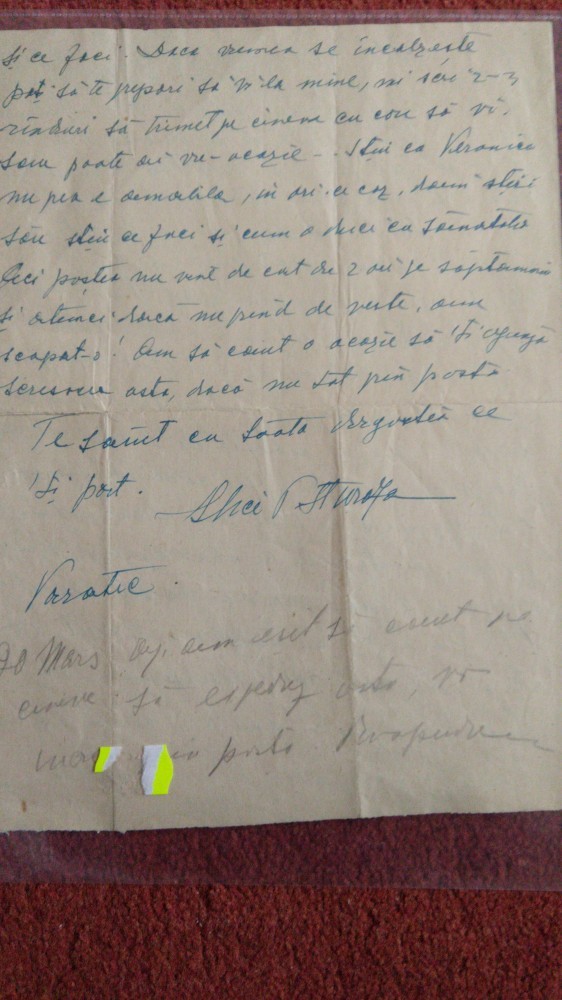 și ce faci. Daca vremea se încalzește
poți să te prepari să vi la mine, mi scri 2-3
rînduri să trimet pe cineva cu con să vi.
sau poate ai vre-ocazie - știu ca Veronica
nu prea e amabila, in ori-ce caz, dami știri
sau știu ce faci și cum o duci cu sănatatea
Aici poștea nu vine de cat de 2 ori pe săptamana
și atunci dacă nu prind de veste, am
scapat-o! Am să caut o ocazie să 'ți ajungă
scrisoarea asta, dacă nu tot prin postă
Te sarut cu toata dragostea ce
'ți port.
Varatic
20 Mars azi am esit să caut pe
cineva să expediez asta, vo
prin posta